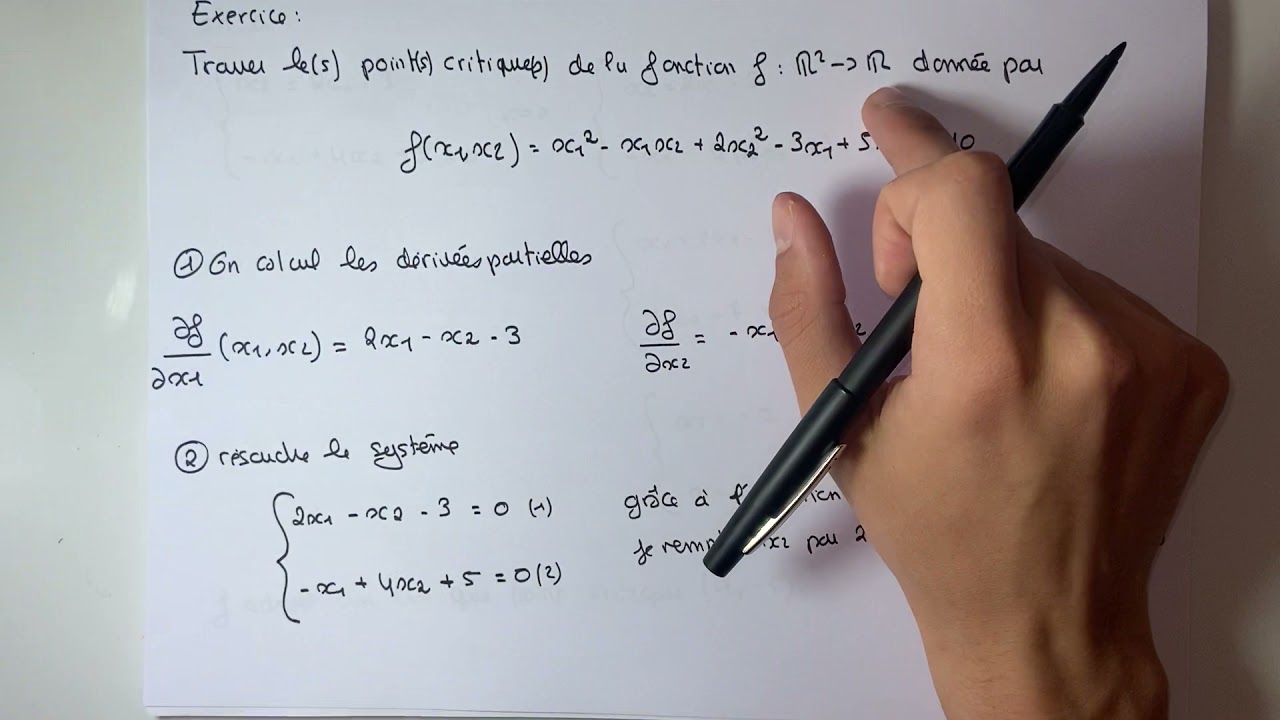 Exercice:
Trouver le(s) point(s) critique(s) de la fonction f: ℝ² → ℝ donnée par
f(x1,x2) = x1² - x1x2 + 2x2² - 3x1 + 5 10
① On calcul les dérivées partielles
∂f/∂x1 (x1,x2) = 2x1 - x2 - 3 ∂f/∂x2 = - x1 2
② résoudre le système
2x1 - x2 - 3 = 0 (1) grâce à
- x1 + 4x2 + 5 = 0 (2) je x2 par 2